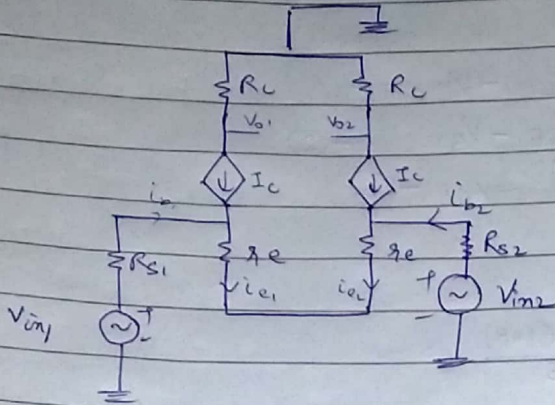 Rc Rc
Vo1 Vo2
Ic Ic
ib ib2
Rs1 re re Rs2
ie1 ie2
+ Vin2
-
Vin1 +
-